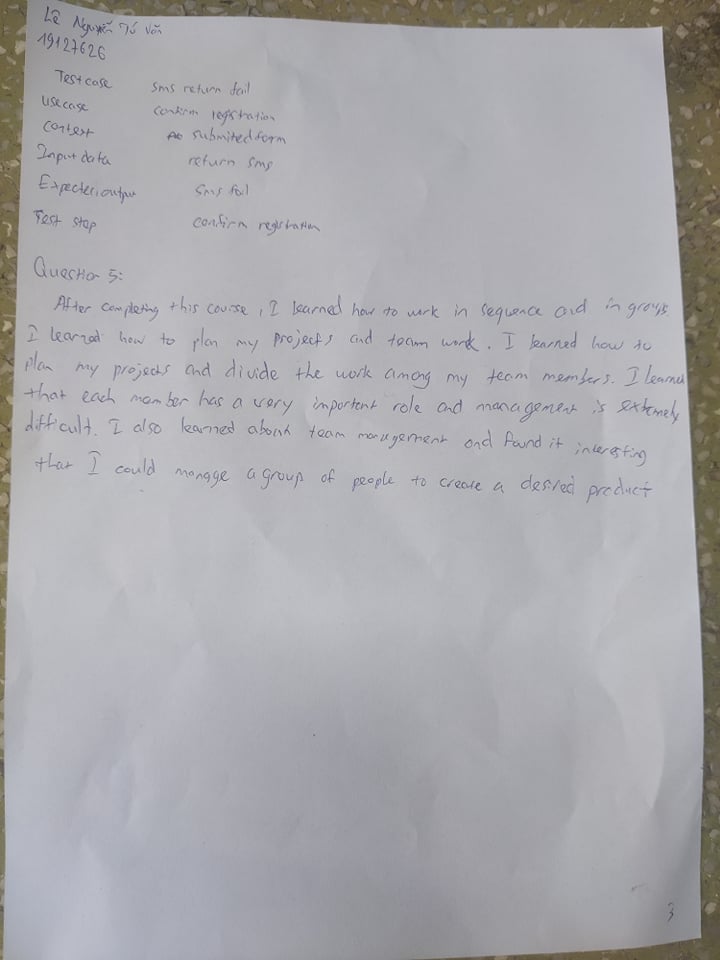 Lê Nguyễn Tú Văn
19127626
Testcase sms return fail
Usecase confirm registration
Context submited form
Input data return sms
Expected output sms fail
Test step confirm registration
Question 5:
After completing this course, I learned how to work in sequence and in groups
I learned how to plan my projects and team work. I learned how to
plan my projects and divide the work among my team members. I learned
that each member has a very important role and management is extemely
difficult. I also learned about team management and found it interesting
that I could manage a group of people to create a desired product
3